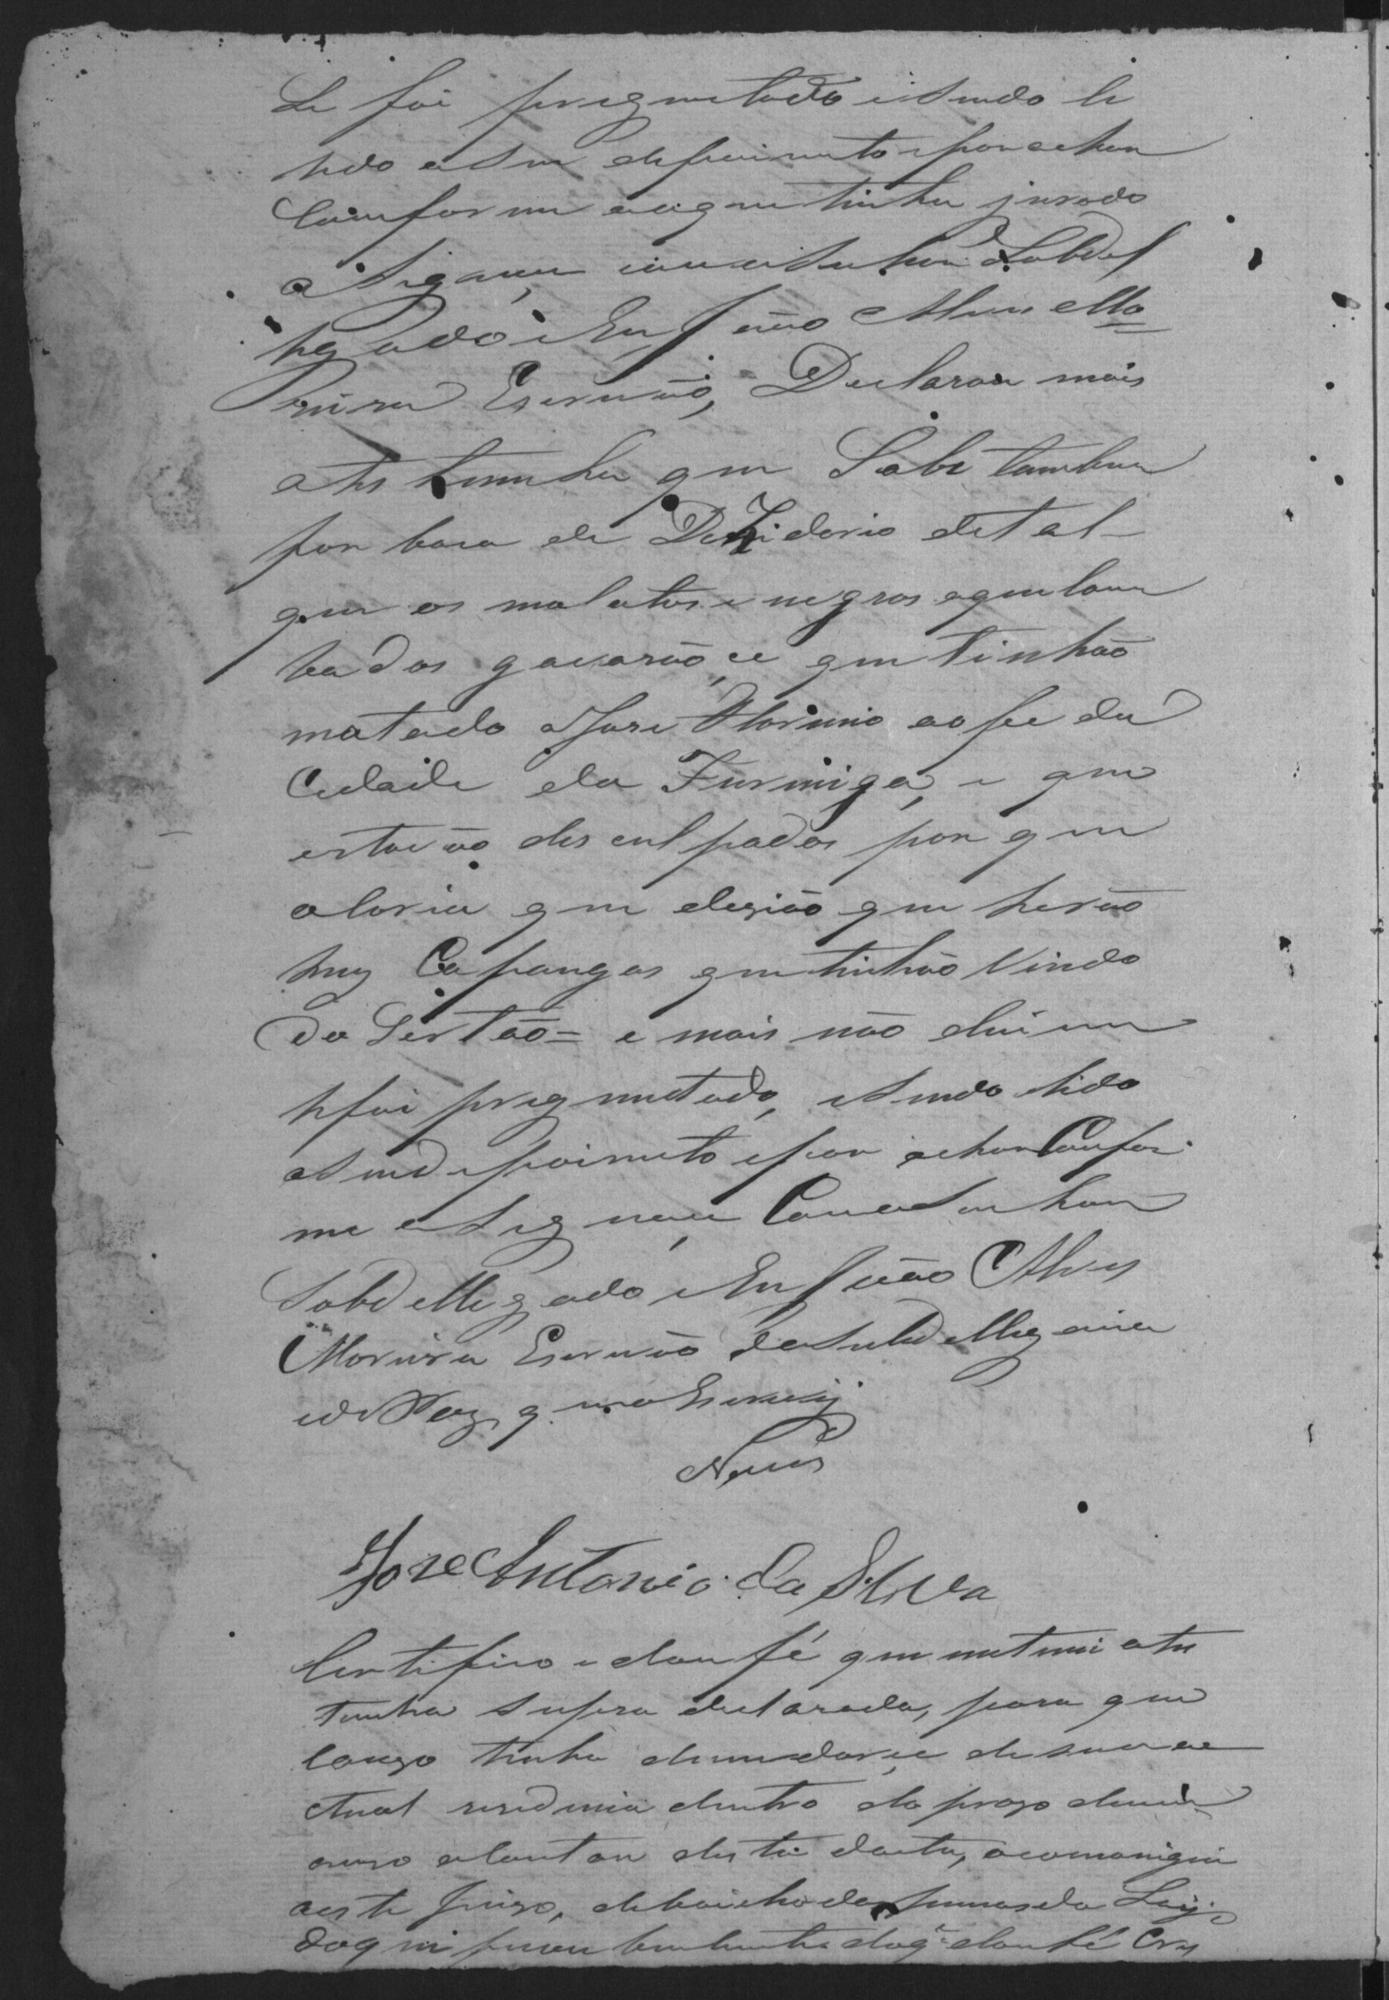 Le foi preguntado e sendo li
hido o seu depoimento e por achar
Comforme ao que tinha jurado
asignou, com o Senhor Subdel
hegado e Eu João Alves Mo=
reira Escrivão, Declarou mais
a testemunha que Sabe tambem
por boca de Deziderio de tal
que os molatos e negros aquelom
bados gavarão ce que tinhão
matado a Jose Florinno ao pe da
Cidade da Furmiga, e que
estavão desculpados por que
a loria que dezião que herão
huns Capangas que tinhão Vindo
do Sertão = e mais não dice nem
lhe foi preguntado, e sendo lido
o seu depoimento e por achar Confor
me asignou, Com o Senhor
Subdellegado e Eu João Alves
Moreira Escrivão da Subdellegacia
e de Paz que o Escrevy
Neves
Jose Antonio da Silva
Certifico e dou fé que notimei a tes
temunha supra declarada, para que
cauzo tenha de mudarce de sua a
ctual residencia dentro do prazo de um
anno a contar desta data, a comonique
a este Juizo, debaicho das pennas da Ley
do que ficou bem sciente do que dou fé Cruz